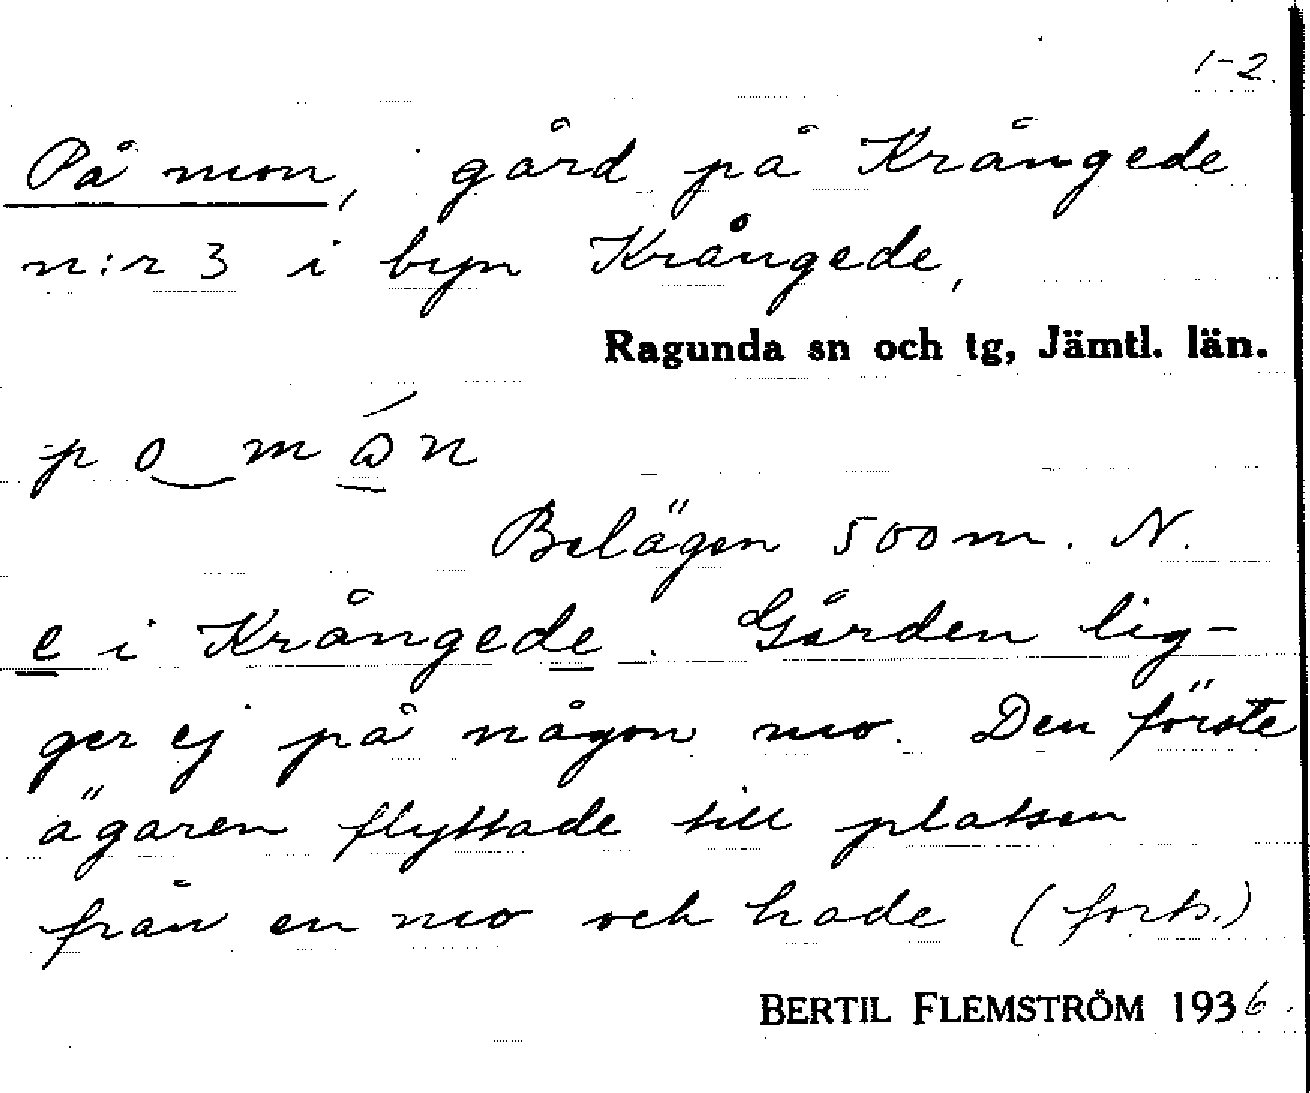 1-2.
På mon, gård på Krångede
n:r 3 i byn Krångede,
Ragunda sn och tg, Jämtl. län.
Belägen 500 m. N.
e i Krångede. Gården lig-
ger ej på någon mo. Den förste
ägaren flyttade till platsen
från en mo och hade (forts.)
BERTIL FLEMSTRÖM 1936.